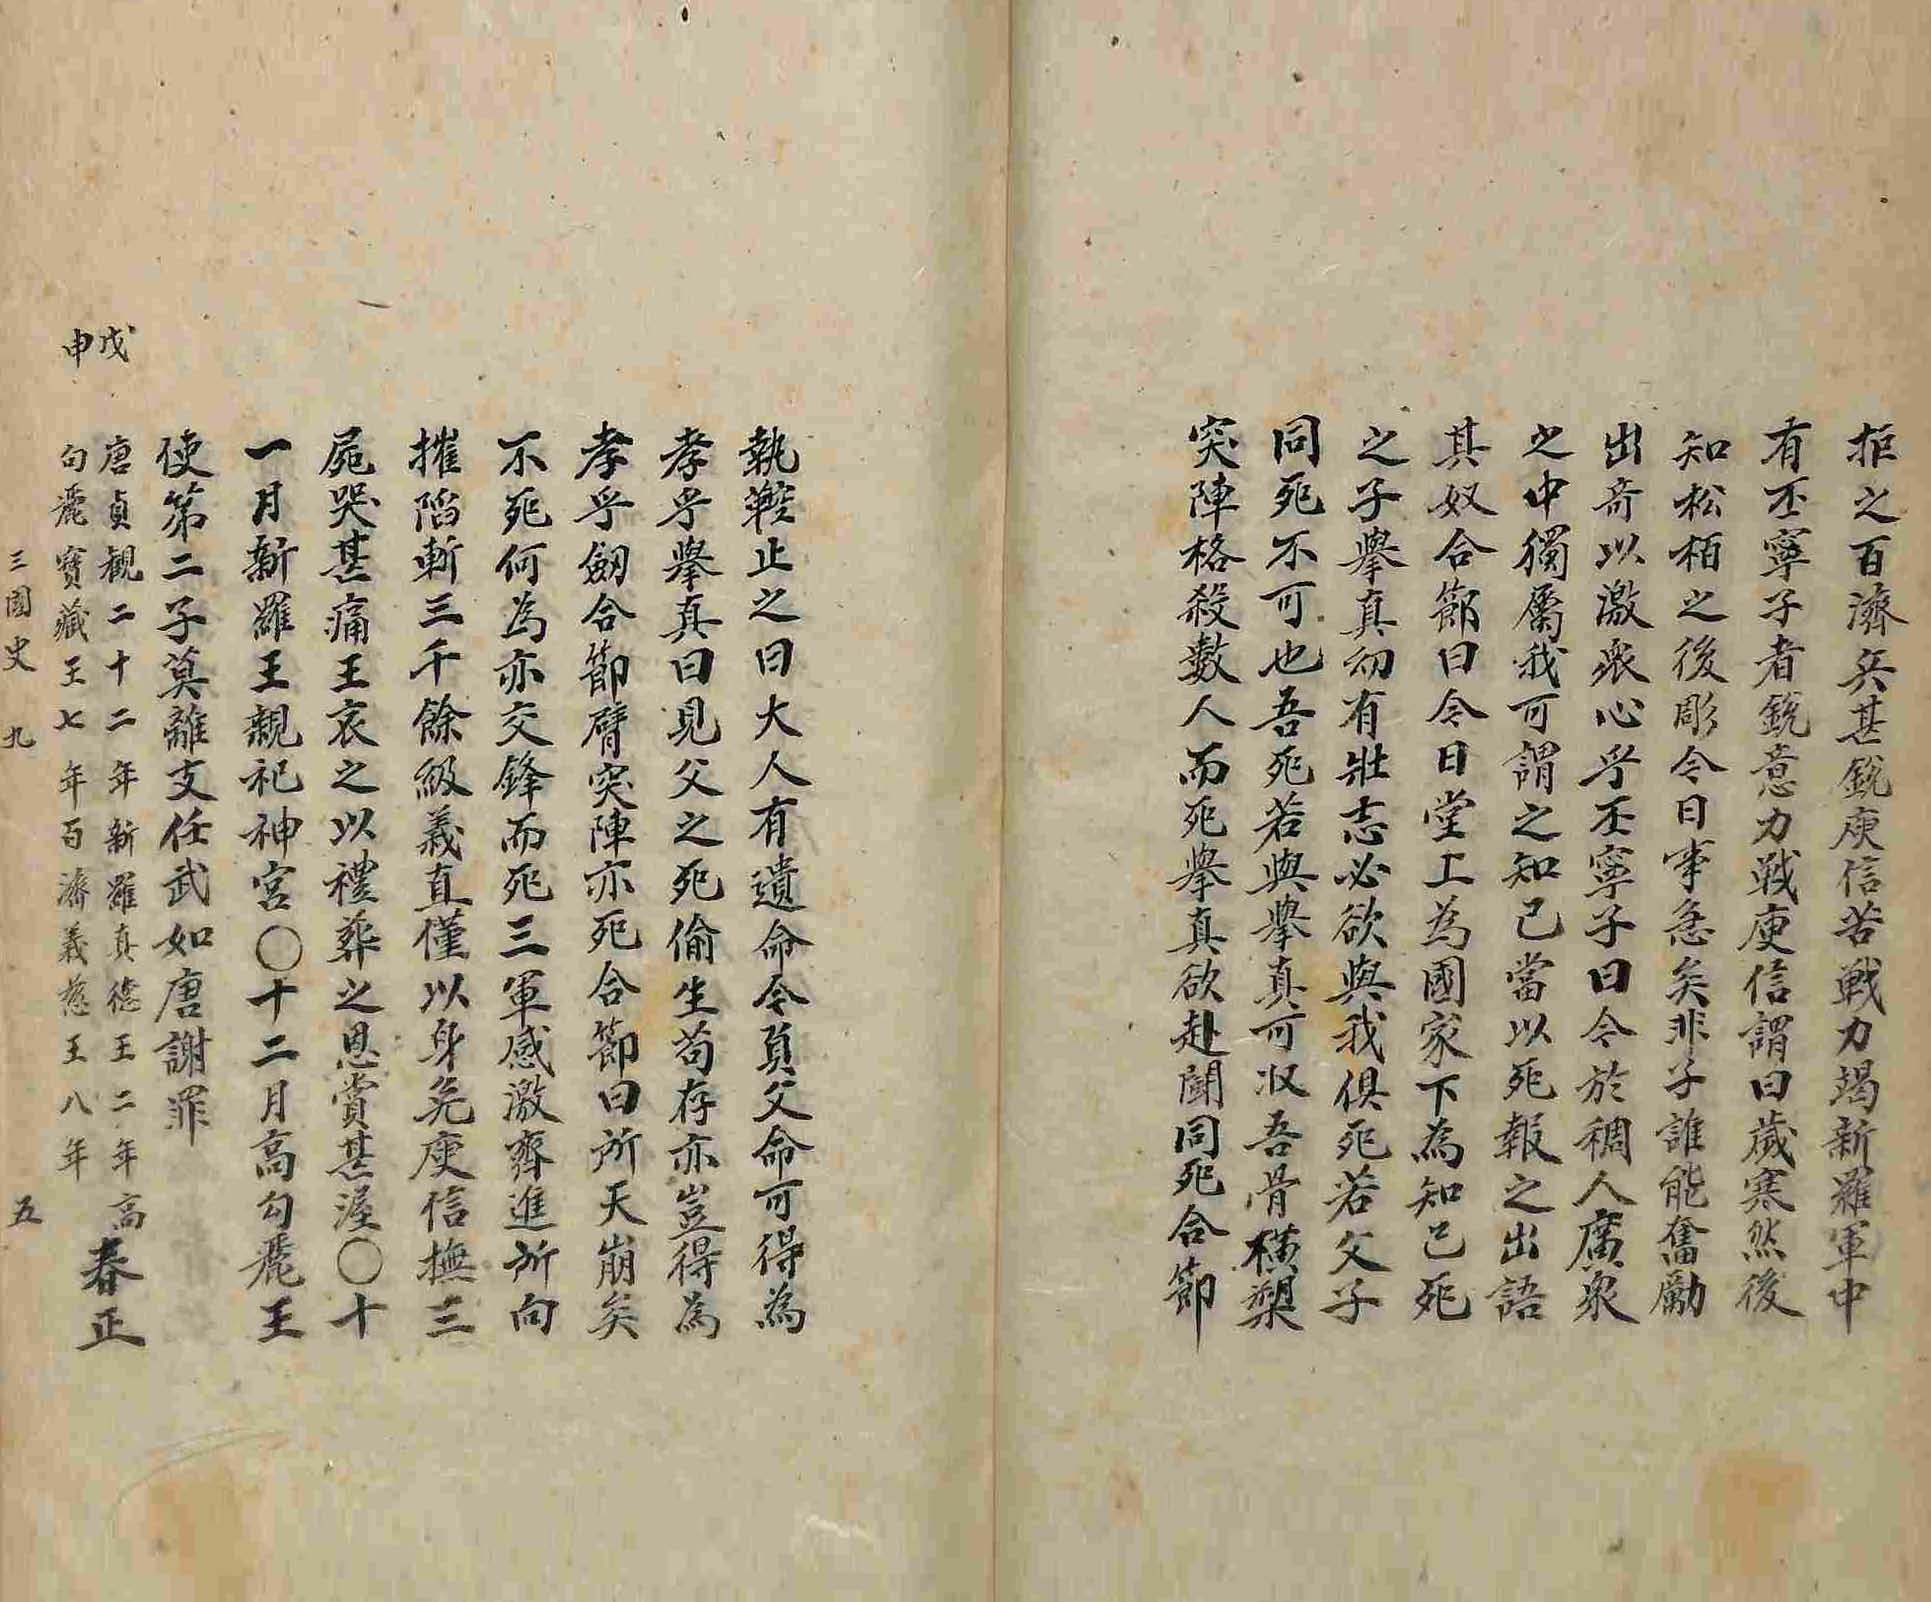 拒之百濟兵甚銳庾信苦戰力竭新羅軍中
有丕寧子者銳意力戰庾信謂曰歲寒然後
知松栢之後彫今日事急矣非子誰能奮勵
出奇以激衆心乎丕寧子曰今於稠人廣衆
之中獨屬我可謂之知己當以死報之出語
其奴合節曰今日堂上為國家下為知己死
之子擧真幼有壯志必欲與我俱死若父子
同死不可也吾死若與擧真可収吾骨橫槊
突陣格殺數人而死擧真欲赴鬪同死合節
執鞚止之曰大人有遺命今負父命可得為
孝乎擧真曰見父之死偷生苟存亦豈得為
孝乎劒合節臂突陣亦死合節曰所天崩矣
不死何為亦交鋒而死三軍感激齊進所向
摧陷斬三千餘級義直僅以身免庾信撫三
屍哭甚痛王哀之以禮葬之恩賞甚渥〇十
一月新羅王親祀神宮〇十二月高勾麗王
使第二子莫離支任武如唐謝罪
戊申
唐貞觀二十二年新羅真德王二年高
句麗寶藏王七年百濟義慈王八年
春正
三國史 九 五